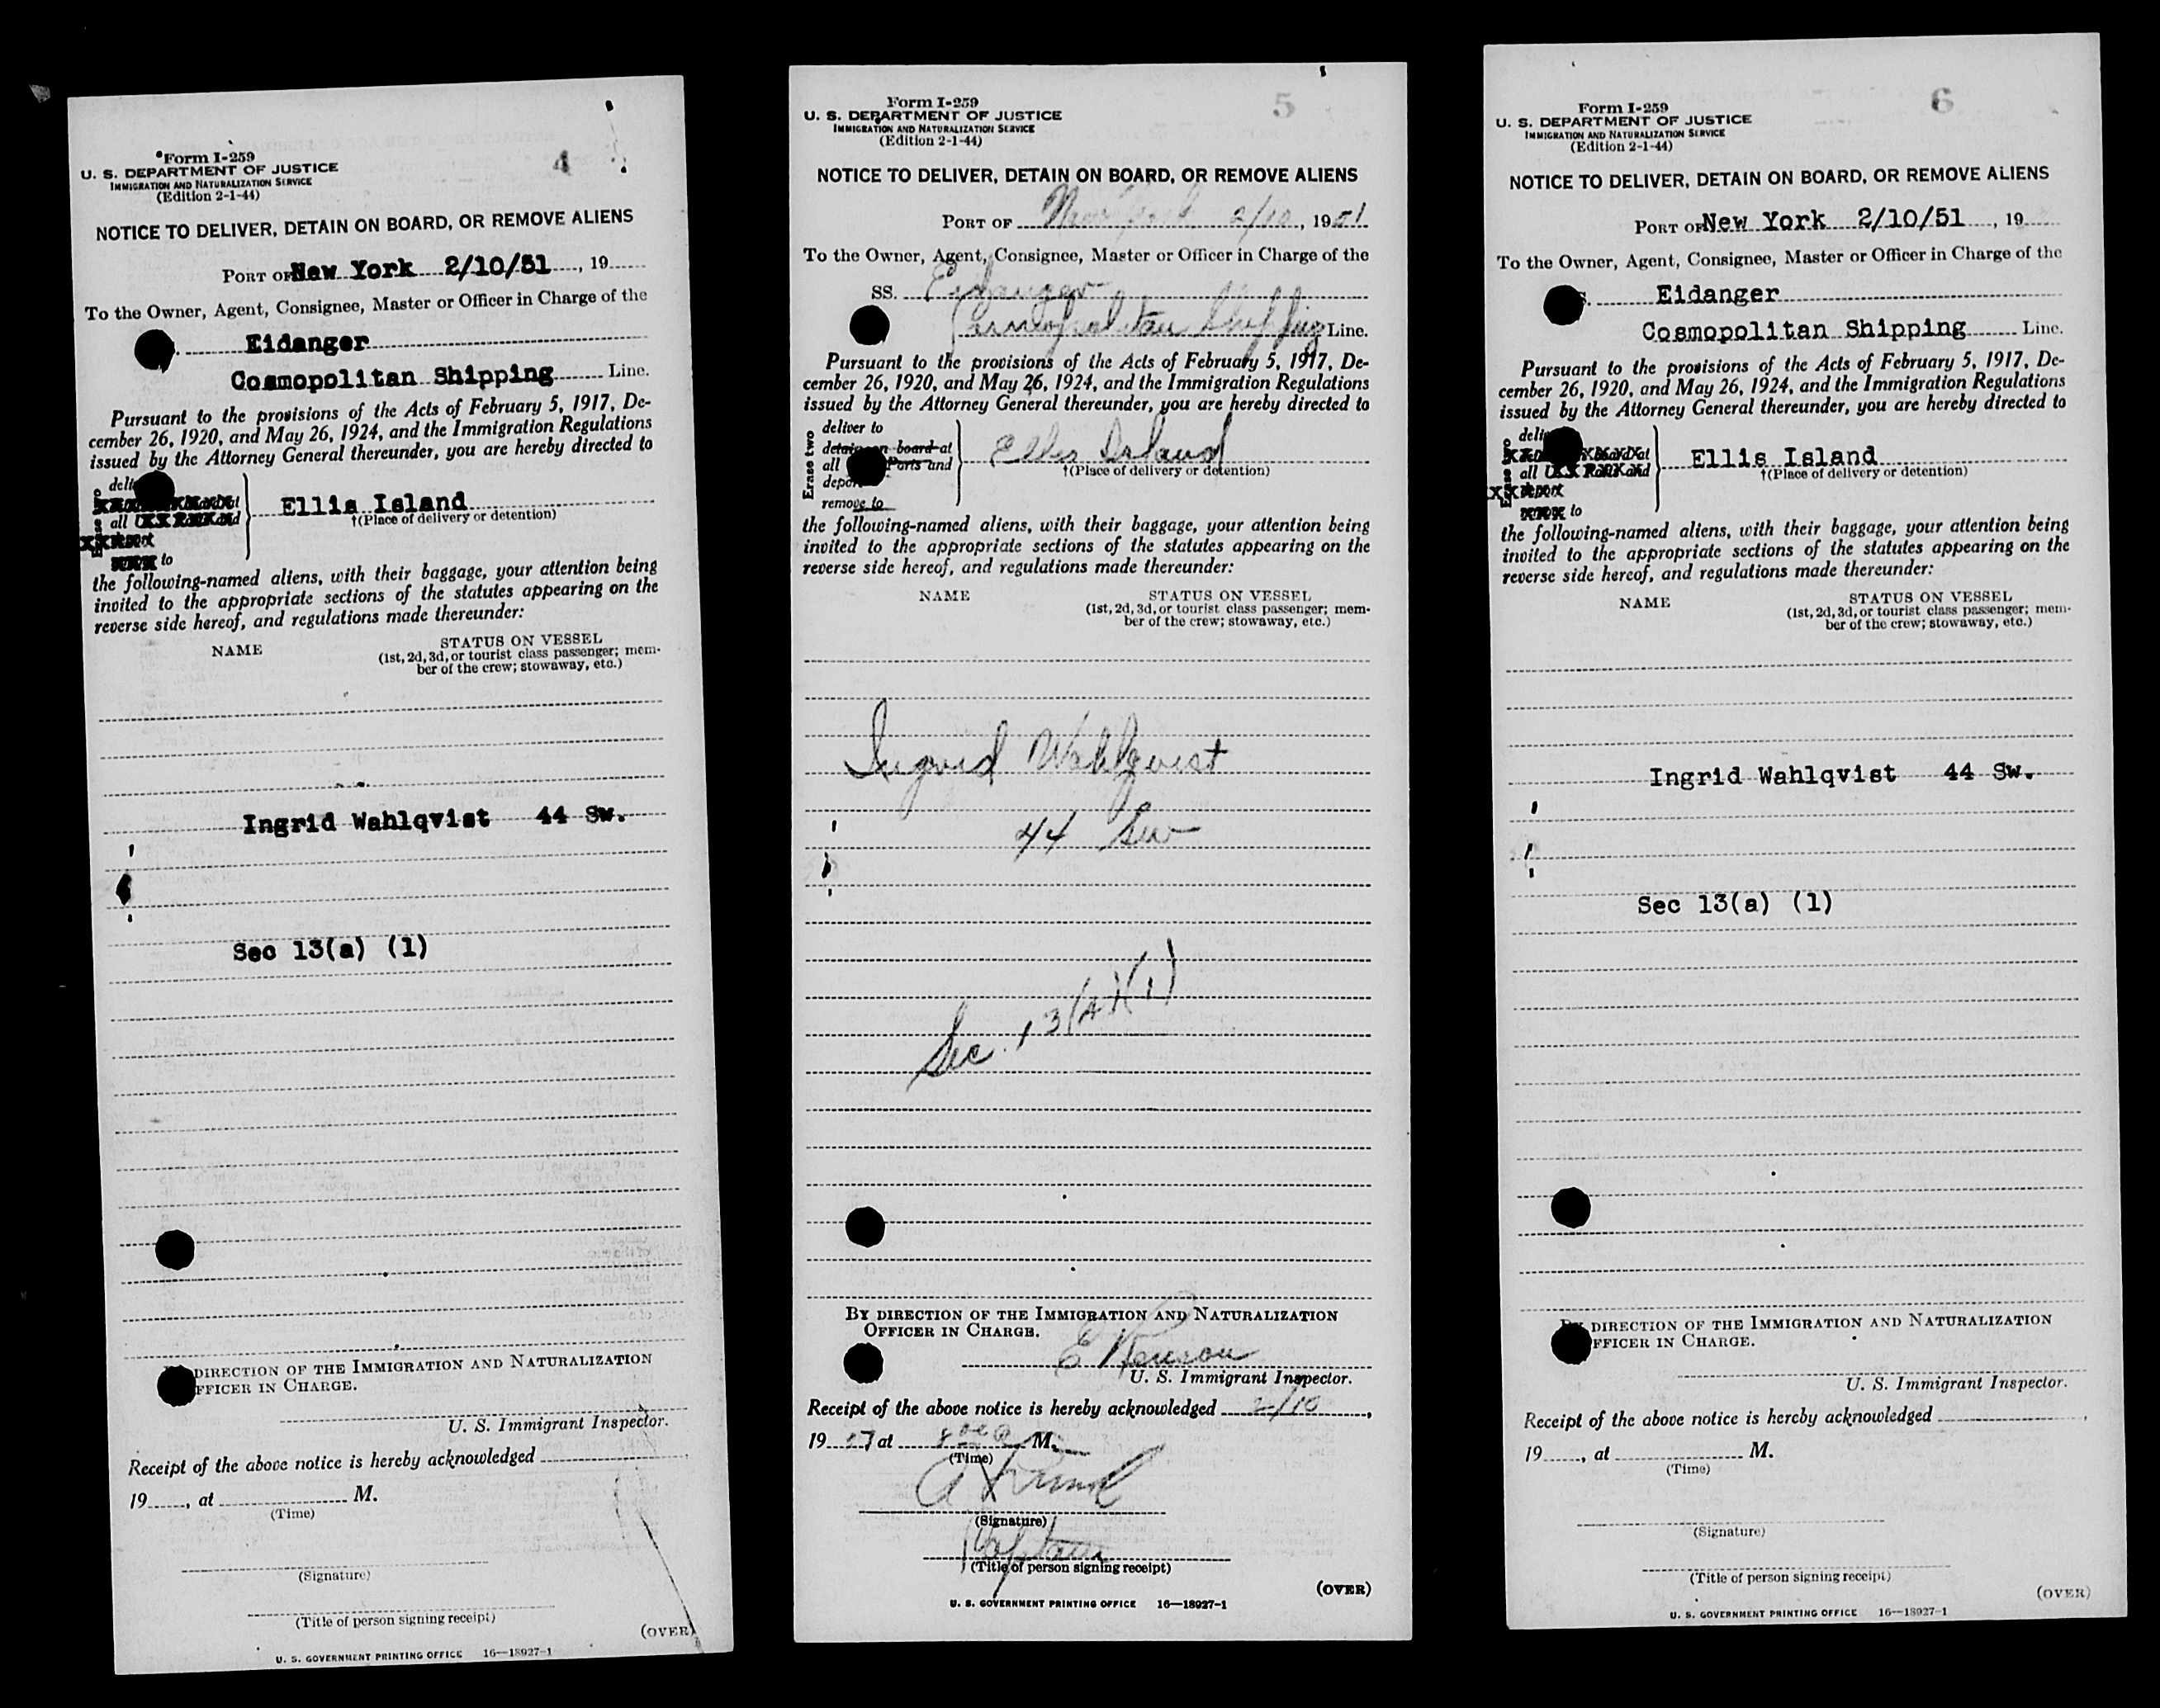 4
Form I-259
U. S. DEPARTMENT OF JUSTICE
IMMIGRATION AND NATURALIZATION SERVICE
(Edition 2-1-44)
NOTICE TO DELIVER, DETAIN ON BOARD, OR REMOVE ALIENS
PORT OF New York 2/10/51, 19
To the Owner, Agent, Consignee, Master or Officer in Charge of the
Eidanger
Cosmopolitan Shipping Line.
Pursuant to the provisions of the Acts of February 5, 1917, De-
cember 26, 1920, and May 26, 1924, and the Immigration Regulations
issued by the Attorney General thereunder, you are hereby directed to
all
to
Ellis Island
†(Place of delivery or detention)
the following-named aliens, with their baggage, your attention being
invited to the appropriate sections of the statutes appearing on the
reverse side hereof, and regulations made thereunder:
NAME
STATUS ON VESSEL
(1st, 2d, 3d, or tourist class passenger; mem-
ber of the crew; stowaway, etc.)
Ingrid Wahlqvist 44 Sw.
Sec 13(a) (1)
DIRECTION OF THE IMMIGRATION AND NATURALIZATION
FFICER IN CHARGE.
U. S. Immigrant Inspector.
Receipt of the above notice is hereby acknowledged
19, at M.
(Time)
(Signature)
(Title of person signing receipt)
(OVER)
U. S. GOVERNMENT PRINTING OFFICE 16—18927-1
5
Form I-259
U. S. DEPARTMENT OF JUSTICE
IMMIGRATION AND NATURALIZATION SERVICE
(Edition 2-1-44)
NOTICE TO DELIVER, DETAIN ON BOARD, OR REMOVE ALIENS
PORT OF New York 2/10, 1951
To the Owner, Agent, Consignee, Master or Officer in Charge of the
SS. Eidanger
Cosmopolitan Shipping Line.
Pursuant to the provisions of the Acts of February 5, 1917, De-
cember 26, 1920, and May 26, 1924, and the Immigration Regulations
issued by the Attorney General thereunder, you are hereby directed to
Erase two
deliver to
detain on board at
all Ports and
depor
remove to
Ellis Island
†(Place of delivery or detention)
the following-named aliens, with their baggage, your attention being
invited to the appropriate sections of the statutes appearing on the
reverse side hereof, and regulations made thereunder:
NAME
STATUS ON VESSEL
(1st, 2d, 3d, or tourist class passenger; mem-
ber of the crew; stowaway, etc.)
Ingrid Wahlqvist
44 Sw
Sec. 13(a)(1)
BY DIRECTION OF THE IMMIGRATION AND NATURALIZATION
OFFICER IN CHARGE.
U. S. Immigrant Inspector.
Receipt of the above notice is hereby acknowledged 2/10,
19 at M.
(Time)
(Signature)
Captain
(Title of person signing receipt)
(OVER)
U. S. GOVERNMENT PRINTING OFFICE 16—18927-1
6
Form I-259
U. S. DEPARTMENT OF JUSTICE
IMMIGRATION AND NATURALIZATION SERVICE
(Edition 2-1-44)
NOTICE TO DELIVER, DETAIN ON BOARD, OR REMOVE ALIENS
PORT OF New York 2/10/51, 19
To the Owner, Agent, Consignee, Master or Officer in Charge of the
Eidanger
Cosmopolitan Shipping Line.
Pursuant to the provisions of the Acts of February 5, 1917, De-
cember 26, 1920, and May 26, 1924, and the Immigration Regulations
issued by the Attorney General thereunder, you are hereby directed to
all
to
Ellis Island
†(Place of delivery or detention)
the following-named aliens, with their baggage, your attention being
invited to the appropriate sections of the statutes appearing on the
reverse side hereof, and regulations made thereunder:
NAME
STATUS ON VESSEL
(1st, 2d, 3d, or tourist class passenger; mem-
ber of the crew; stowaway, etc.)
Ingrid Wahlqvist 44 Sw.
Sec 13(a) (1)
DIRECTION OF THE IMMIGRATION AND NATURALIZATION
FFICER IN CHARGE.
U. S. Immigrant Inspector.
Receipt of the above notice is hereby acknowledged ,
19, at M.
(Time)
(Signature)
(Title of person signing receipt)
(OVER)
U. S. GOVERNMENT PRINTING OFFICE 16—18927-1